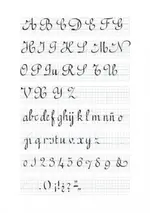 A B C D E F G
H I J K L M N
O P Q R S T U
V X Y Z
abcdefghijklmnño
pqrstuvxyz
0123456789&
.,0¡!¿?".